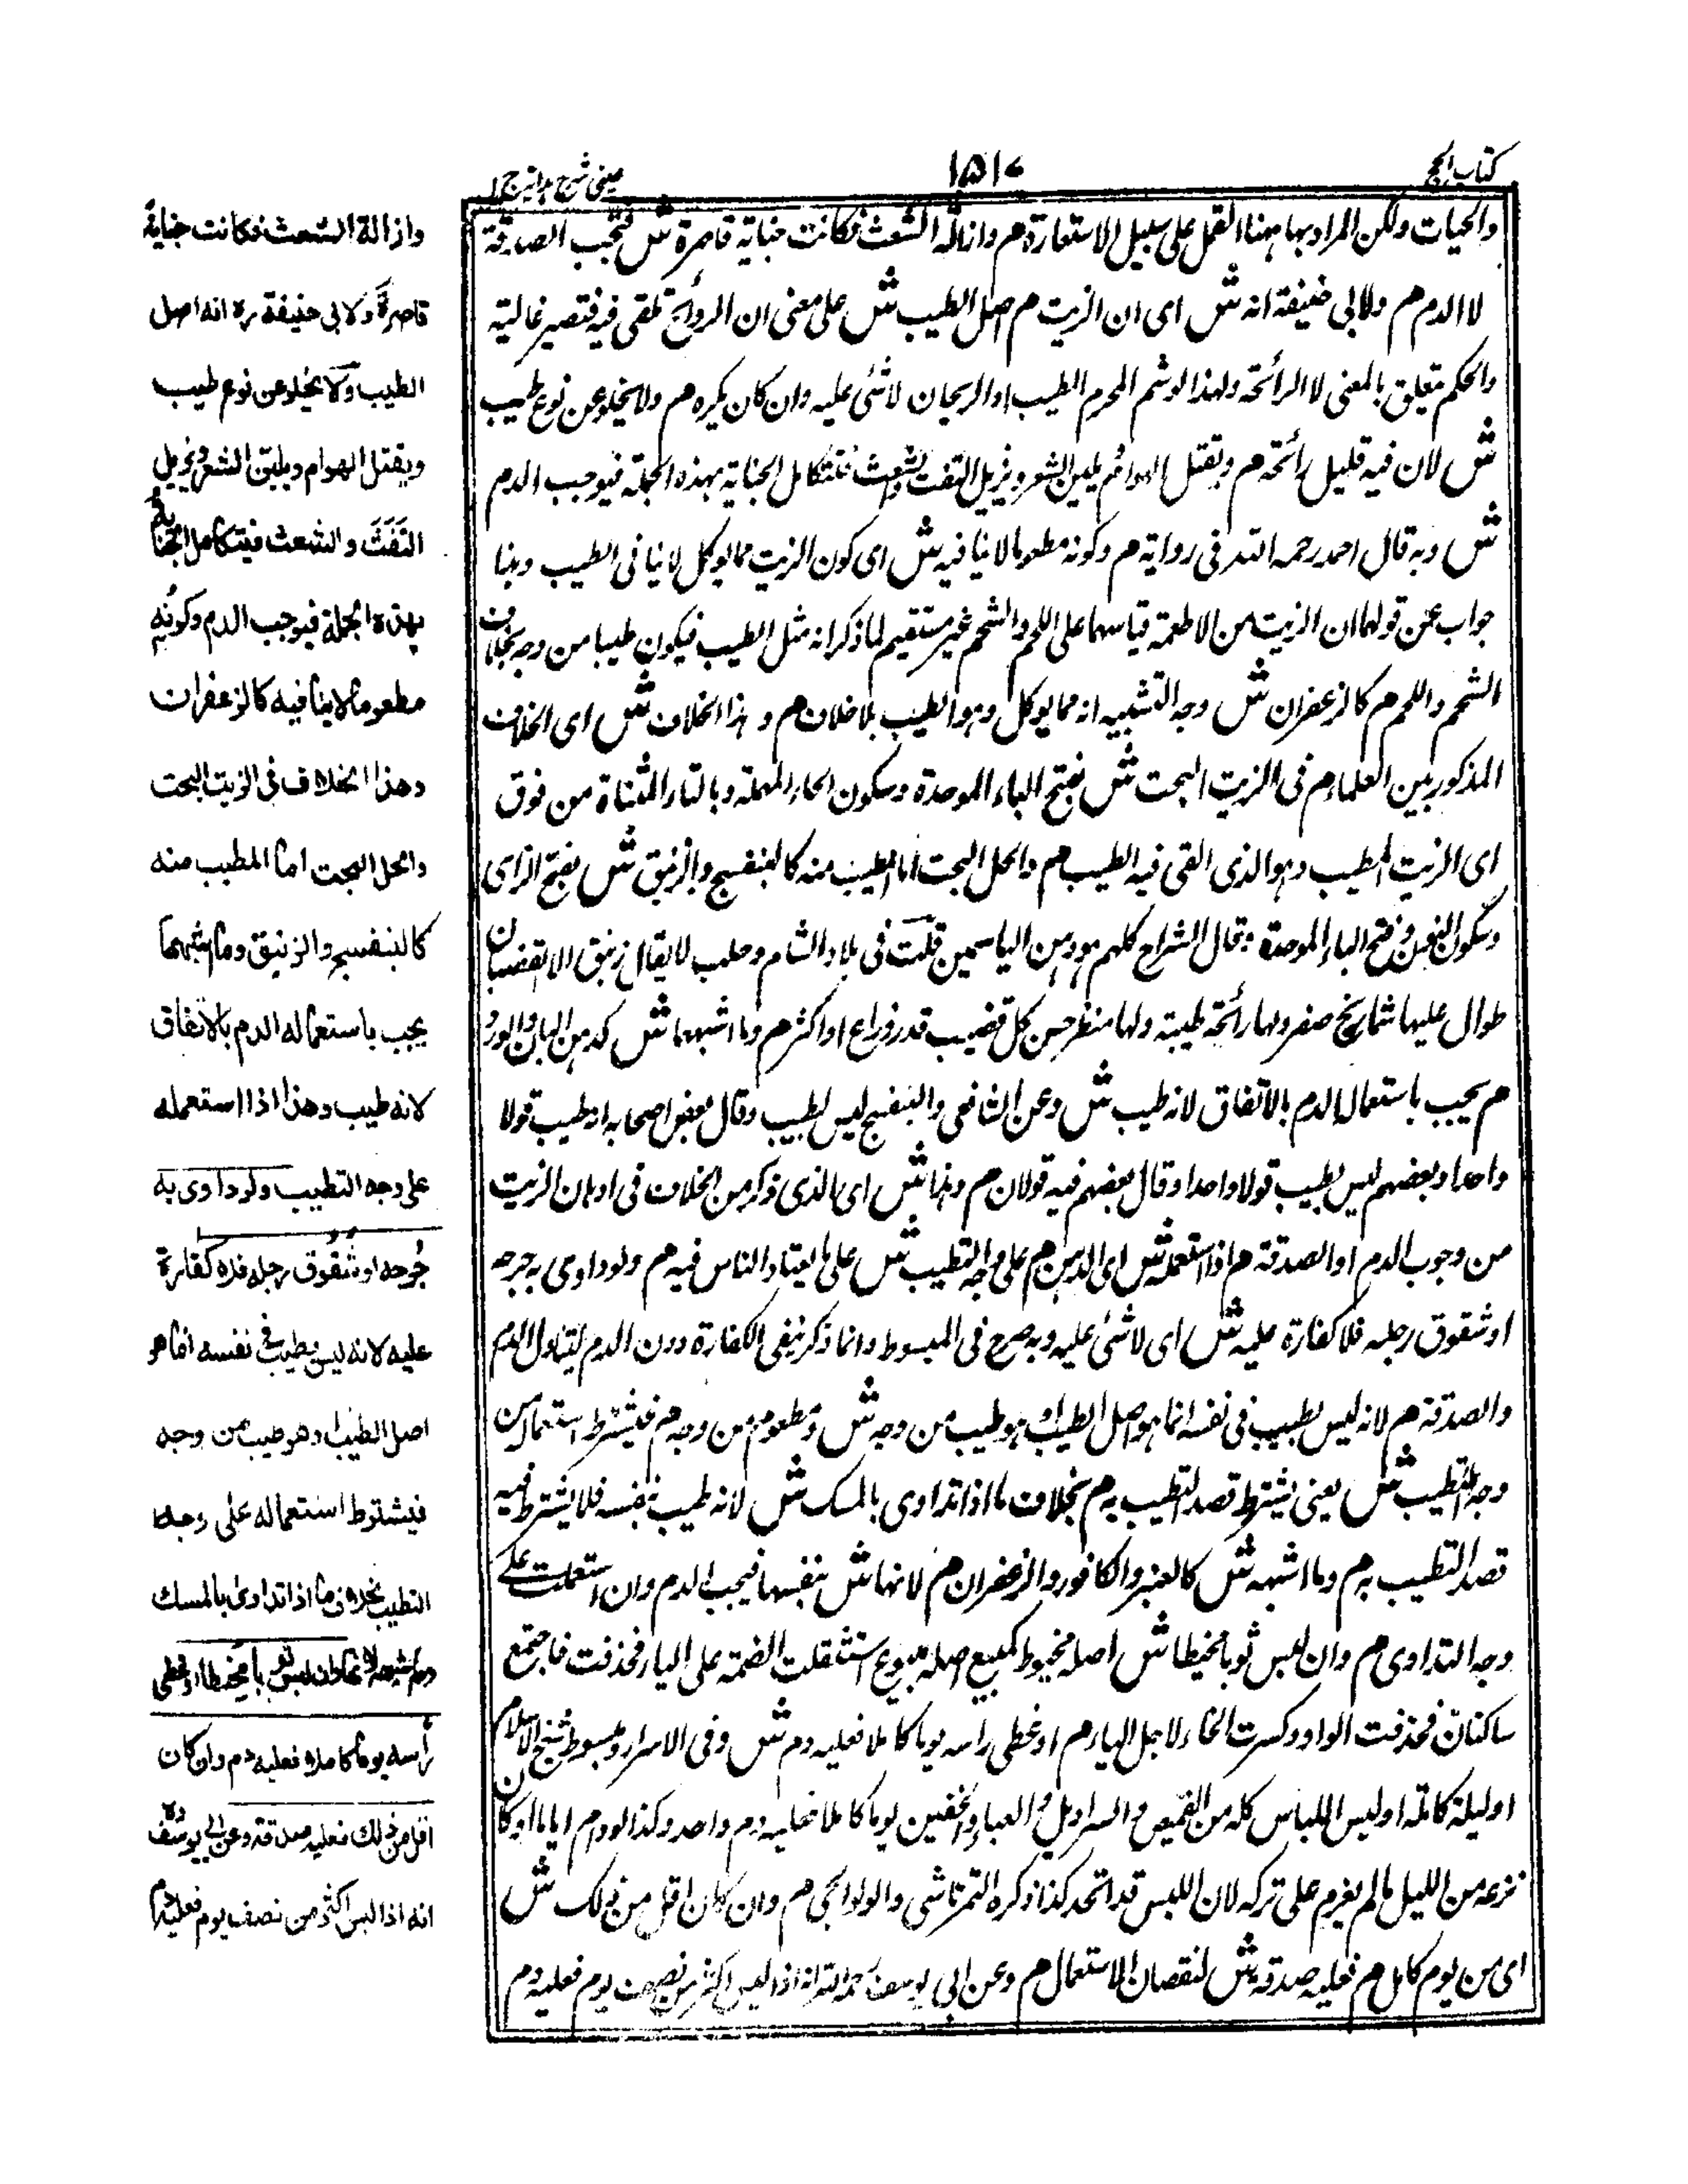 كتاب الحج
١٥١٠
عینی شرح ہدایہ ج ١
والحیات ولكن المراد بها ههنا القمل علی سبیل الاستعارة م وازالة الشعث فكانت جنایة قاصرة ش فتجب الصدقة
لا الدم م ولابی حنیفة انه ش ای ان الزیت م اصل الطیب ش علی معنی ان الروائح تلقی فیه فتصیر غالیة
والحكم متعلق بالمعنی لا الرائحة ولهذا لو شم المحرم الطیب او الریحان لا شئ علیه وان كان یكره م ولا یخلو عن نوع طیب
ش لان فیه قلیل رائحة م ویقتل الهوام ویلین الشعر ویزیل التفث والشعث فتتكامل الجنایة بهذه الجملة فیوجب الدم
ش وبه قال احمد رحمه الله فی روایة م وكونه مطعوما لا ینافیه ش ای كون الزیت مما یوكل لا ینافی الطیب وهذا
جواب عن قولهما ان الزیت من الاطعمة قیاسهما علی اللحم والشحم غیر مستقیم لما ذكر انه مثل الطیب فیكون طیبا من وجه بخلاف
الشحم واللحم م كالزعفران ش وجه التشبیه انه مما یوكل وهو الطیب بلا خلاف م وهذا الخلاف ش ای الخلاف
المذكور بین العلماء م فی الزیت البحت ش بفتح الباء الموحدة وسكون الحاء المهملة وبالتاء المثناة من فوق
ای الزیت المطیب وهو الذی القی فیه الطیب م والحل البحت اما المطیب منه كالبنفسج والزنبق ش بفتح الزای
وسكون النون وفتح الباء الموحدة وقال الشراح كلهم هو دهن الیاسمین قلت فی بلاد الشام وحلب لا یقال زنبق الا لقضبان
طوال علیها شماریخ صفر ولها رائحة طیبة ولها منظر حسن كل قضیب قدر ذراع او اكثر م وما اشبههما ش كدهن البان والورد
م یجب باستعماله الدم بالاتفاق لانه طیب ش وعن الشافعی والبنفسج لیس بطیب وقال بعض اصحابه انه طیب قولا
واحدا وبعضهم لیس بطیب قولا واحدا وقال بعضهم فیه قولان م وهذا ش ای الذی ذكر من الخلاف فی ادهان الزیت
من وجوب الدم او الصدقة م اذا استعمله ش ای الدهن م علی وجه التطیب ش علی ما یعتاد الناس فیه م ولو داوی به جرحه
او شقوق رجله فلا كفارة علیه ش ای لا شئ علیه وبه صرح فی المبسوط وانما ذكر نفی الكفارة دون الدم لیتناول الدم
والصدقة م لانه لیس بطیب فی نفسه انما هو اصل الطیب او هو طیب من وجه ش ومطعوم من وجه م فیشترط استعماله من
وجه التطیب ش یعنی یشترط قصد التطیب به م بخلاف ما اذا تداوی بالمسك ش لانه طیب بنفسه فلا یشترط فیه
قصد التطیب به م وما اشبهه ش كالعنبر والكافور والزعفران م لانها ش بنفسها فیجب الدم وان استعملت علی
وجه التداوی م وان لبس ثوبا مخیطا ش اصله مخیوط كمبیع اصله مبیوع استثقلت الضمة علی الیاء فحذفت فاجتمع
ساكنان فحذفت الواو وكسرت الخاء لاجل الیاء م او غطی راسه یوما كاملا فعلیه دم ش وفی الاسرار ومبسوط شیخ الاسلام
او لیلة كاملة او لبس اللباس كله من القمیص والسراویل والعباء والخفین یوما كاملا فعلیه دم واحد وكذا لو دام ایاما او كان
نزعه من اللیل ما لم یعزم علی تركه لان اللبس قد اتحد كذا ذكره التمرتاشی والولوالجی م وان كان اقل من ذلك ش
ای من یوم كامل م فعلیه صدقة ش لنقصان الاستعمال م وعن ابی یوسف رحمه الله انه اذا لبس اكثر من نصف یوم فعلیه دم
وازالة الشعث فكانت جنایة
قاصرة ولابی حنیفة ره انه اصل
الطیب ولا یخلو عن نوع طیب
ویقتل الهوام ویلین الشعر ویزیل
التفث والشعث فیتكامل الجنایة
بهذه الجملة فیوجب الدم وكونه
مطعوما لا ینافیه كالزعفران
وهذا الخلاف فی الزیت البحت
والحل البحت اما المطیب منه
كالبنفسج والزنبق وما اشبههما
یجب باستعماله الدم بالاتفاق
لانه طیب وهذا اذا استعمله
علی وجه التطیب ولو داوی به
جُرحه او شُقُوق رجله فلا كفارة
علیه لانه لیس بطیب فی نفسه انما هو
اصل الطیب او هو طیب من وجه
فیشترط استعماله علی وجه
التطیب بخلاف ما اذا تداوی بالمسك
وما اشبهه لانها وان لبس ثوبا مخیطا او غطی
رأسه یوما كاملا فعلیه دم وان كان
اقل من ذلك فعلیه صدقة وعن ابی یوسف ره
انه اذا لبس اكثر من نصف یوم فعلیه دم